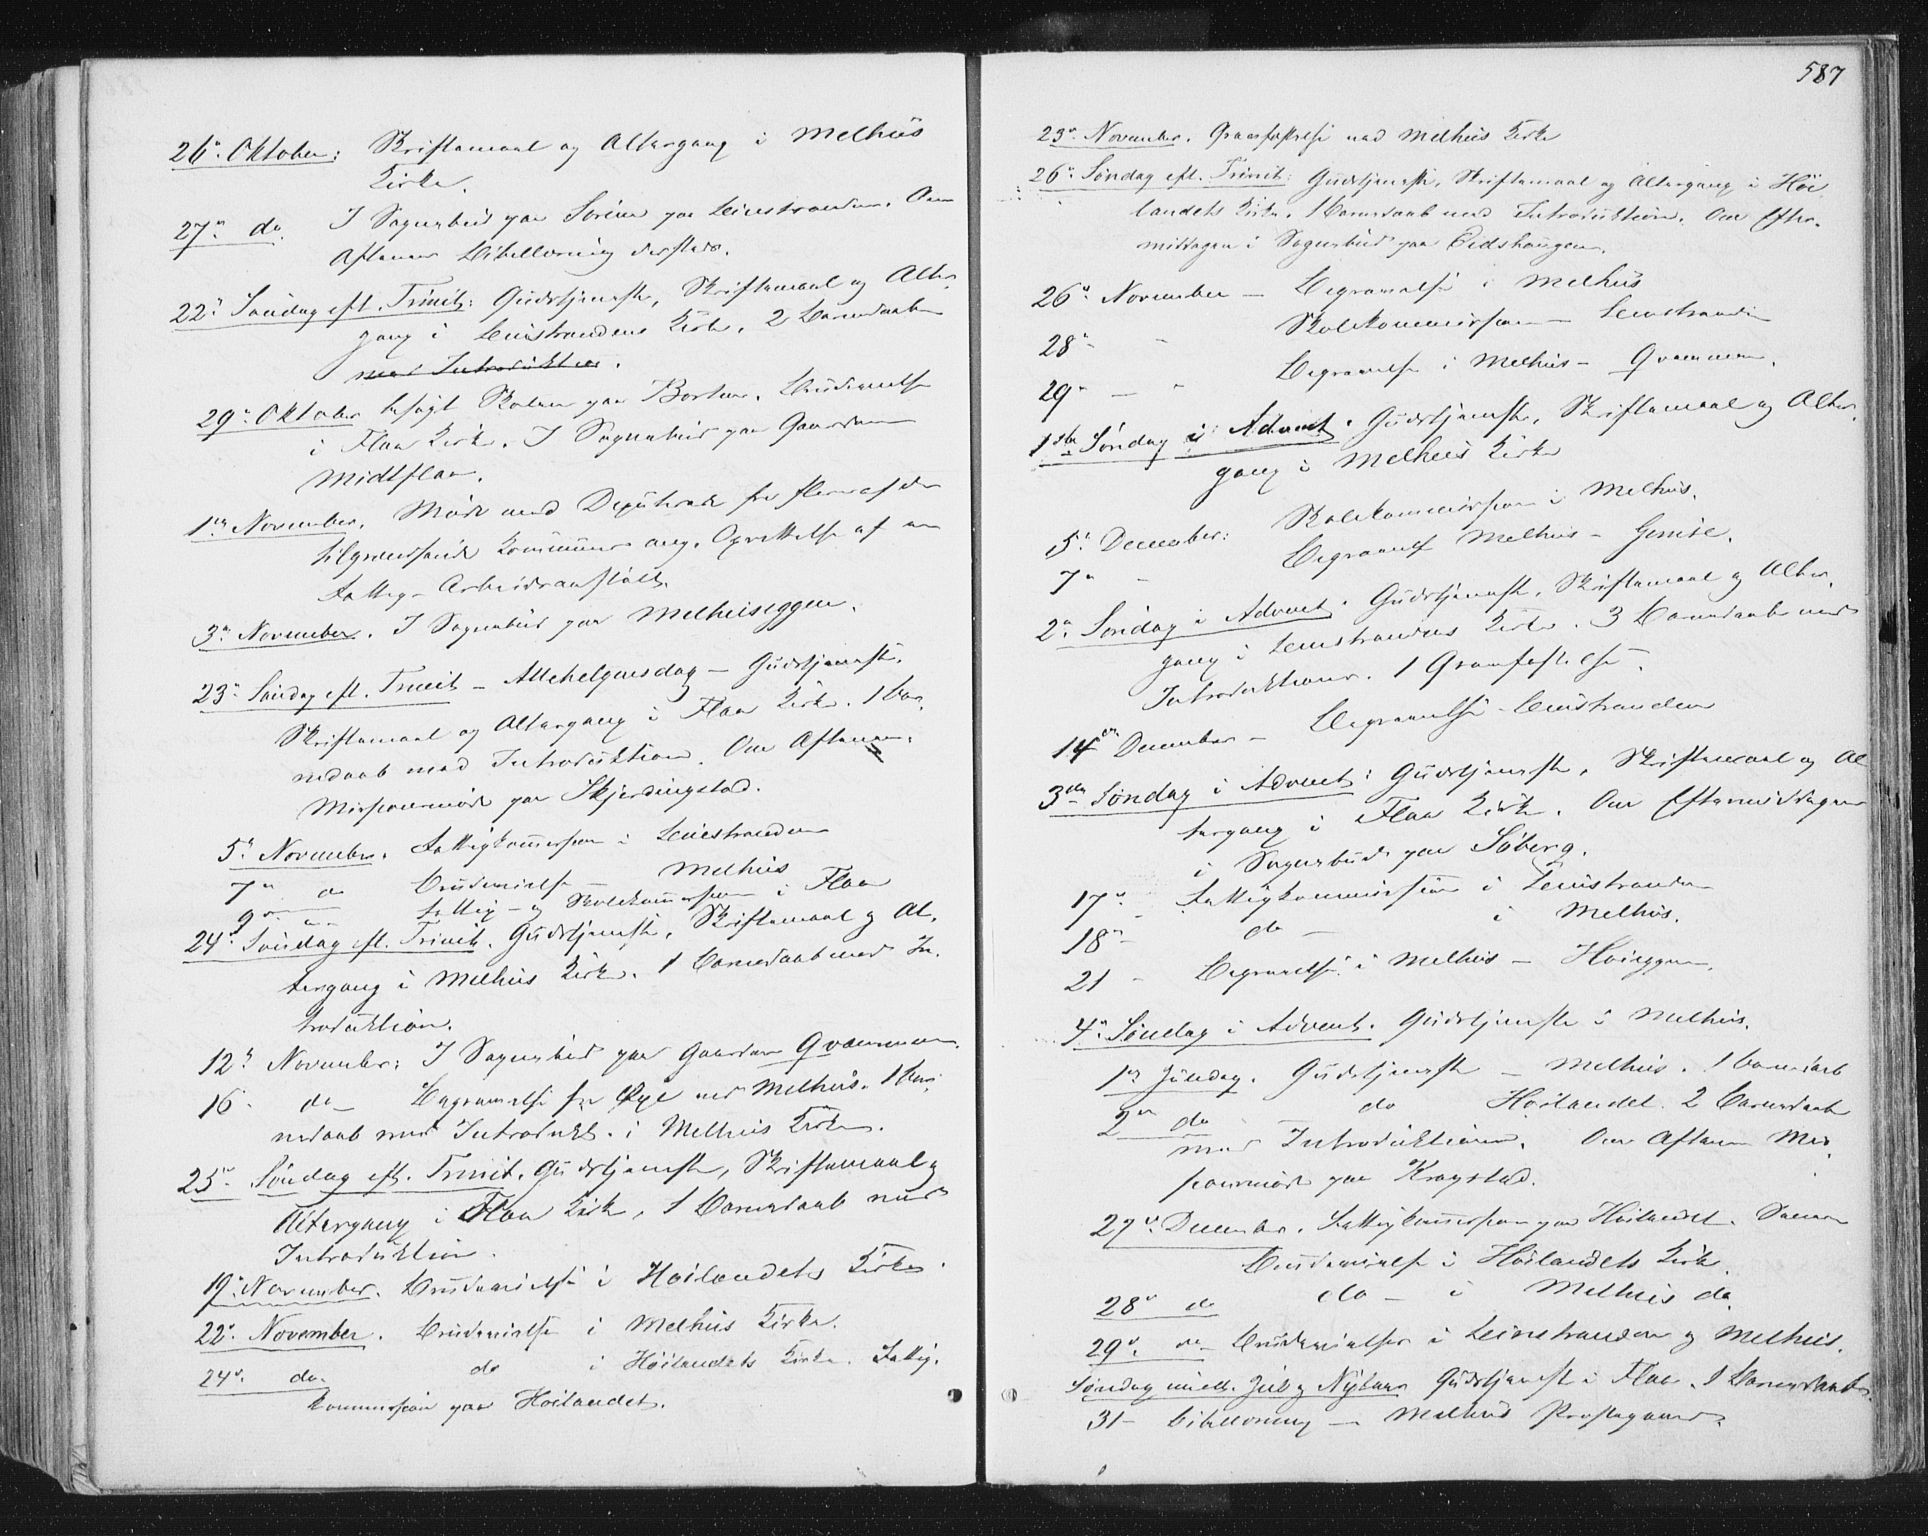 26de Oktober: Skriftemaal og Altergang i Melhus
Kirke.
27de do. I Sognebud paa Sörine paa Leinstranden. Om
Aftenen Bibellæsning dersteds.
22de Söndag eft. Trinit: Gudstjeneste, Skriftemaal og Alter-
gang i Leinstrandens Kirke. 2 Barnedaab
med Introduktion.
29de Oktober besögt Skolen paa Borten. Brudevielse
i Flaa Kirke. I Sognebud paa Gaarden
Midtflaa.
1ste November. Möde med Deputerede fra flere af de
tilgrændsende Kommuner ang. Oprettelse af en
Fattig-Arbeidsanstalt.
3de November. I Sognebud paa Melhuseggen.
23de Söndag eft. Trinit - Allehelgensdag - Gudstjeneste,
Skriftemaal og Altergang i Flaa Kirke. 1 Bar-
nedaab med Introduktion. Om Aftenen
Missionsmöde paa Skjerdingstad.
5te November. Fattigkommission i Leinstranden
7de do Brudevielse - Melhus
9de do Fattig- og Skolekommission i Flaa
24de Söndag eft. Trinit. Gudstjeneste, Skriftemaal og Al-
tergang i Melhus Kirke. 1 Barnedaab med In-
troduktion.
12te November: I Sognebud paa Gaarden Qvammen.
16 - do - Begravelse fra Øye ved Melhus. 1 Bar-
nedaab med Introdukt. i Melhus Kirke.
25de Söndag eft. Trinit. Gudstjeneste, Skriftemaal og
Altergang i Flaa Kirke, 1 Barnedaab med
Introduktion.
19de November. Brudevielse i Höilandets Kirke.
22de November. Brudevielse i Melhus Kirke.
24de do. do i Höilandets Kirke. Fattig-
kommission paa Höilandet.
587
23de November. Gravfæstelse ved Melhus Kirke
26de Söndag eft. Trinit: Gudstjeneste, Skriftemaal og Altergang i Höi-
landets Kirke. 1 Barnedaab med Introduktion. Om Efter-
middagen i Sognebud paa Eidshaugen.
26de November - Begravelse i Melhus
28de - - Skolekommission - Leinstranden
29de - - Begravelse i Melhus - Qvammen.
1ste Söndag i Advent. Gudstjeneste, Skriftemaal og Alter-
gang i Melhus Kirke
5te December: Skolekommission i Melhus.
7de - Begravelse Melhus - Gimse.
2den Söndag i Advent. Gudstjeneste, Skriftemaal og Alter-
gang i Leinstrandens Kirke. 3 Barnedaab med
Introduktioner. 1 Gravfæstelse.
14de December - Begravelse - Leinstranden
3die Söndag i Advent: Gudstjeneste, Skriftemaal og Al-
tergang i Flaa Kirke. Om Eftermiddagen
i Sognebud paa Söberg.
17de - Fattigkommission i Leinstranden
18de - do - i Melhus.
21 - Begravelse i Melhus - Höieggen.
4de Söndag i Advent. Gudstjeneste i Melhus.
1ste Juledag. Gudstjeneste - Melhus. 1 Barnedaab
2den do do Höilandet. 2 Barnedaab
med Introduktioner. Om Aftenen Mis-
sionsmöde paa Kregstad.
27de December. Fattigkommission paa Höilandet. Samme
Brudevielse i Höilandets Kirke.
28de do do - i Melhus do.
29de do - Brudevielser i Leinstranden og Melhus.
Söndag mell. Jul og Nytaar Gudstjeneste i Flaa. 1 Barnedaab.
31 - Bibellæsning - Melhus Præstegaard.